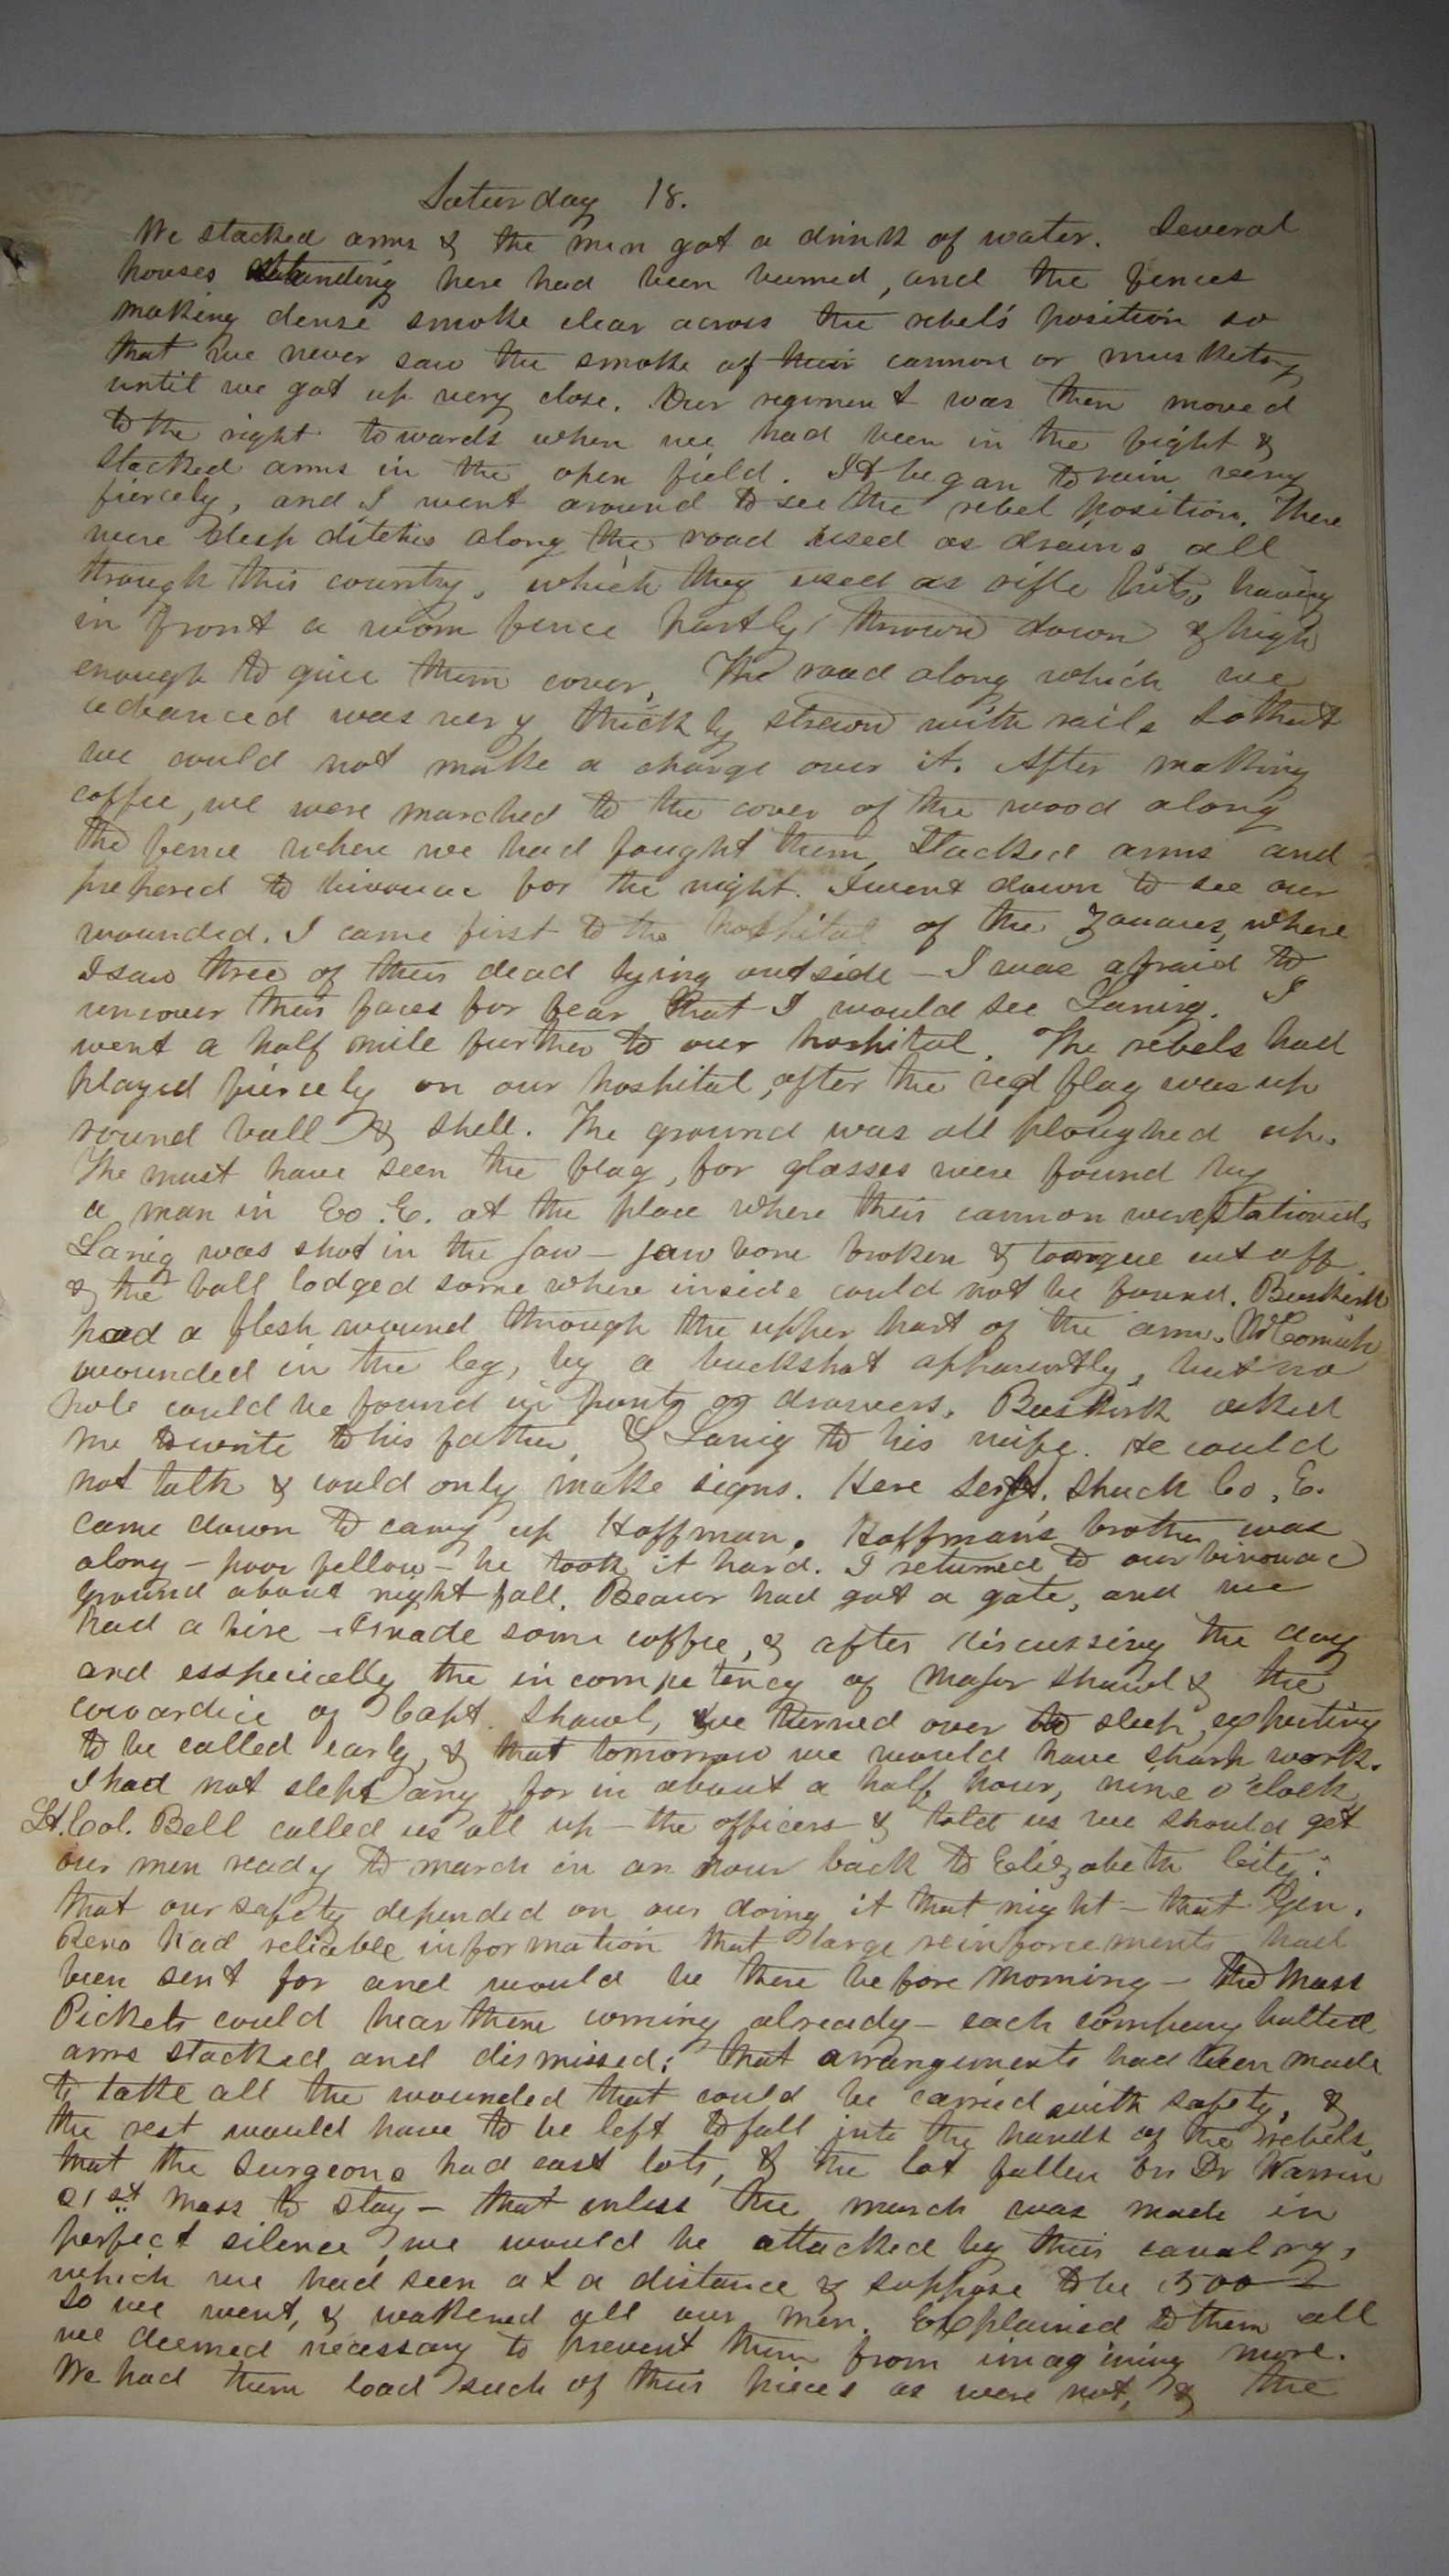 Saturday 18.
We stacked arms & the men got a drink of water. Several
houses standing here had been burned, and the fences
making dense smoke clear across the rebel's position so
that we never saw the smoke of their cannon or musketry
until we got up very close. Our regiment was then moved
to the right towards when we had been in the fight &
stacked arms in the open field. It began to rain very
fiercely, and I went around to see the rebel position. There
were deep ditches along the road used as drains all
through this country, which they used as rifle pits, having
in front a worm fence partly thrown down & high
enough to give them cover. The road along which we
advanced was very thickly strewn with rails so that
we could not make a charge over it. After making
coffee, we were marched to the cover of the wood along
the fence where we had fought them, stacked arms and
prepared to bivouac for the night. I went down to see our
wounded. I came first to the hospital of the Zouaves, where
I saw three of their dead lying outside – I was afraid to
uncover their faces for fear that I would see Lanig. I
went a half mile further to our hospital. The rebels had
played fiercely on our hospital, after the red flag was up
round ball & shell. The ground was all ploughed up.
The must have seen the flag, for glasses were found by
a man in Co. E. at the place where their cannon were stationed.
Lanig was shot in the jaw – jaw bone broken & tongue cut off
& the ball lodged some where inside could not be found. Buskirk
had a flesh wound through the upper part of the arm.
wounded in the leg, by a buckshot apparently, but no
hole could be found in pants or drawers. Buskirk asked
me to write to his father & Lanig to his wife. He could
not talk & could only make signs. Here Sergt. Shuck Co. E.
came down to carry up Hoffman. Hoffman's brother was
along – poor fellow – he took it hard. I returned to our bivouac
ground about night fall. Beaver had got a gate, and we
had a fire – I made some coffee, & after discussing the day
and esspecially the incompetency of Major Shawl & the
cowardice of Capt. Shawl, we turned over to sleep, expecting
to be called early, & that tomorrow we would have sharp work.
I had not slept any for in about a half hour, nine o'clock
Lt. Col. Bell called us all up – the officers & told us we should get
our men ready to march in an hour back to Elizabeth City:
that our safety depended on our doing it that night – that Gen.
Reno had reliable information that large reinforcements had
been sent for and would be there before morning – the Mass
Pickets could hear them coming already – each company halted
arms stacked and dismissed; that arrangements had been made
to take all the wounded that could be carried with safety, &
the rest would have to be left to fall into the hands of the rebels,
that the surgeons had cast lots, & the lot fallen on Dr Warren
21st Mass to stay – that unless the march was made in
perfect silence, we would be attacked by their cavalry,
which we had seen at a distance & suppose to be 1500
So we went, & wakened all our men. Explained to them all
we deemed necessary to prevent them from imagining more.
We had them load such of their pieces as were not, & the